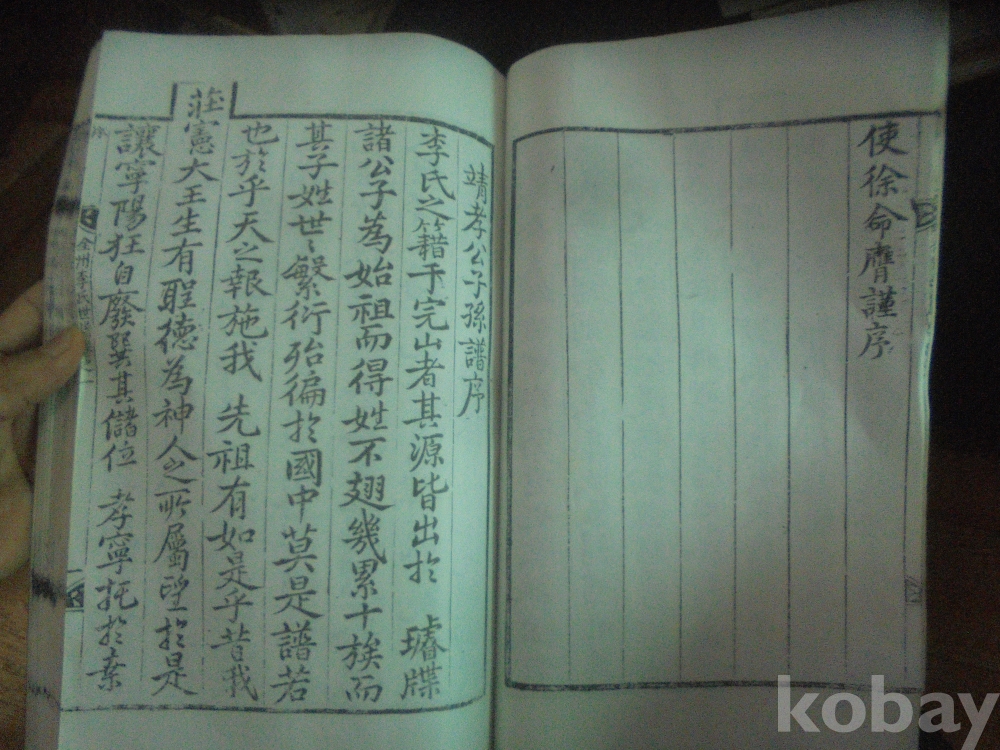 使徐命膺謹序
靖孝公子孫譜序
李氏之籍于完山者其源皆出於　璿牒
諸公子為始祖而得姓不翅幾累十族而
其子姓世〻繁衍殆徧於國中莫是譜若
也於乎天之報施我　先祖有如是乎昔我
莊憲大王生有聖德為神人之所屬望於是
讓寧陽狂自廢巽其儲位　孝寧托於桒
序
全州李氏世
kobay